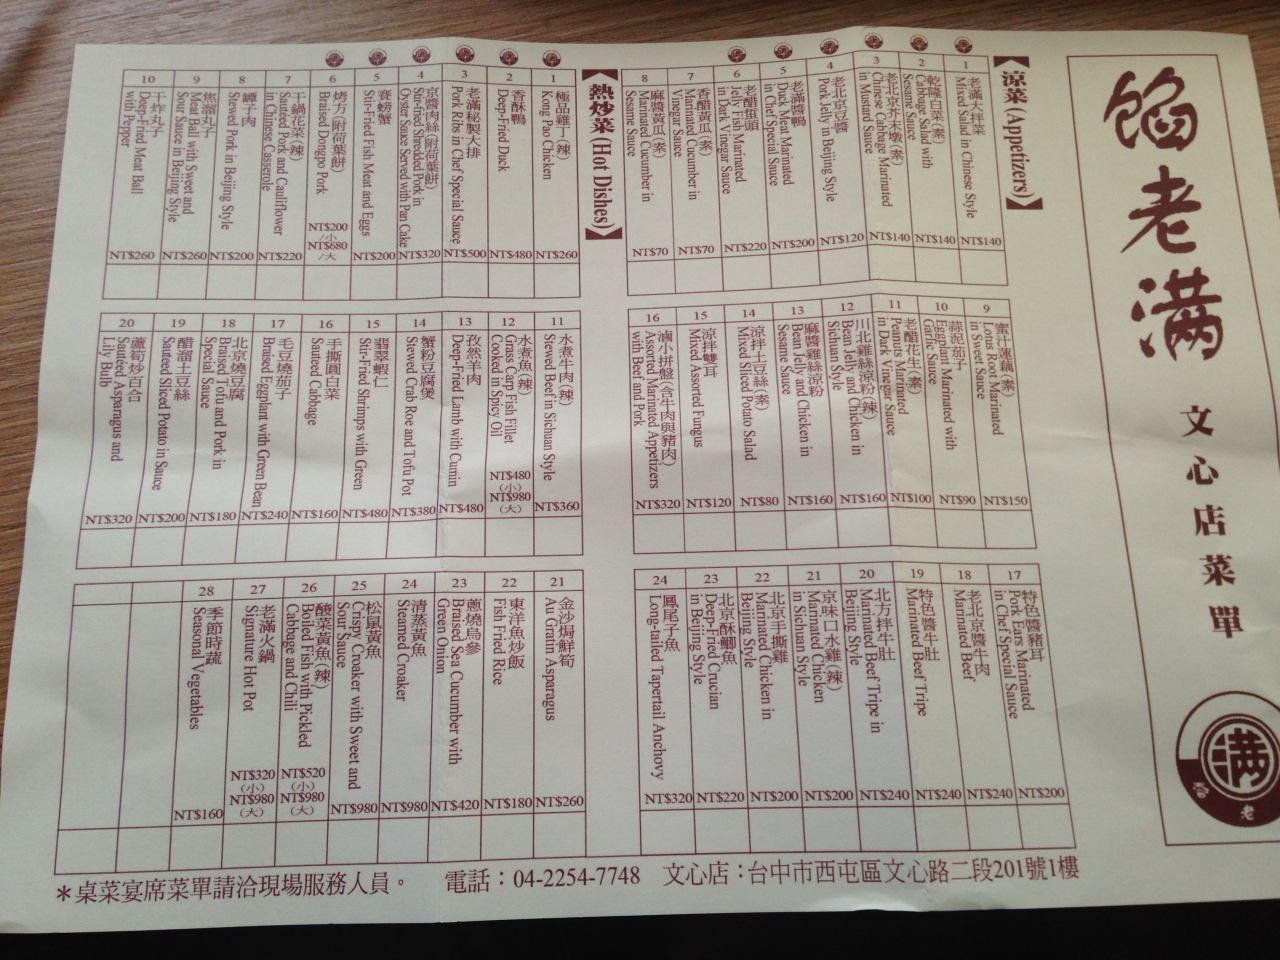 餡老滿
文心店菜單
滿
餡 老
【涼菜 (Appetizers)】
1
老滿大拌菜
Mixed Salad in Chinese Style
NT$140
2
乾隆白菜(素)
Cabbage Salad with
Sesame Sauce
NT$140
3
老北京芥末墩(素)
Chinese Cabbage Marinated
in Mustard Sauce
NT$140
4
老北京豆醬
Pork Jelly in Beijing Style
NT$120
5
老滿醬鴨
Duck Meat Marinated
in Chef Special Sauce
NT$200
6
老醋蜇頭
Jelly Fish Marinated
in Dark Vinegar Sauce
NT$220
7
香醋黃瓜(素)
Marinated Cucumber in
Vinegar Sauce
NT$70
8
麻醬黃瓜(素)
Marinated Cucumber in
Sesame Sauce
NT$70
9
蜜汁蓮藕(素)
Lotus Root Marinated
in Sweet Sauce
NT$150
10
蒜泥茄子
Eggplant Marinated with
Garlic Sauce
NT$90
11
老醋花生(素)
Peanuts Marinated
in Dark Vinegar Sauce
NT$100
12
川北雞絲涼粉(辣)
Bean Jelly and Chicken in
Sichuan Style
NT$160
13
麻醬雞絲涼粉
Bean Jelly and Chicken in
Sesame Sauce
NT$160
14
涼拌土豆絲(素)
Mixed Sliced Potato Salad
NT$80
15
涼拌雙耳
Mixed Assorted Fungus
NT$120
16
滷小拼盤(含牛肉與豬肉)
Assorted Marinated Appetizers
with Beef and Pork
NT$320
17
特色醬豬耳
Pork Ears Marinated
in Chef Special Sauce
NT$200
18
老北京醬牛肉
Marinated Beef
NT$240
19
特色醬牛肚
Marinated Beef Tripe
NT$240
20
北方拌牛肚
Marinated Beef Tripe in
Beijing Style
NT$240
21
京味口水雞(辣)
Marinated Chicken
in Sichuan Style
NT$200
22
北京手撕雞
Marinated Chicken in
Beijing Style
NT$200
23
北京酥鯽魚
Deep-Fried Crucian
in Beijing Style
NT$220
24
鳳尾子魚
Long-tailed Tapertail Anchovy
NT$320
【熱炒菜 (Hot Dishes)】
1
極品雞丁(辣)
Kong Pao Chicken
NT$260
2
香酥鴨
Deep-Fried Duck
NT$480
3
老滿秘製大排
Pork Ribs in Chef Special Sauce
NT$500
4
京醬肉絲(附荷葉餅)
Stir-Fried Shredded Pork in
Oyster Sauce Served with Pan Cake
NT$320
5
賽螃蟹
Stir-Fried Fish Meat and Eggs
NT$200
6
烤方(附荷葉餅)
Braised Dongpo Pork
NT$200
/小
NT$680
/大
7
干鍋花菜(辣)
Sauteed Pork and Cauliflower
in Chinese Casserole
NT$220
8
罈子肉
Stewed Pork in Beijing Style
NT$200
9
焦溜丸子
Meat Ball with Sweet and
Sour Sauce in Beijing Style
NT$260
10
干炸丸子
Deep-Fried Meat Ball
with Pepper
NT$260
11
水煮牛肉(辣)
Stewed Beef in Sichuan Style
NT$360
12
水煮魚(辣)
Grass Carp Fish Fillet
Cooked in Spicy Oil
NT$480
(小)
NT$980
(大)
13
孜然羊肉
Deep-Fried Lamb with Cumin
NT$480
14
蟹粉豆腐煲
Stewed Crab Roe and Tofu Pot
NT$380
15
翡翠蝦仁
Stir-Fried Shrimps with Green
NT$480
16
手撕圓白菜
Sauteed Cabbage
NT$160
17
毛豆燒茄子
Braised Eggplant with Green Bean
NT$240
18
北京燒豆腐
Braised Tofu and Pork in
Special Sauce
NT$180
19
醋溜土豆絲
Sauteed Sliced Potato in Sauce
NT$200
20
蘆筍炒百合
Sauteed Asparagus and
Lily Bulb
NT$320
21
金沙焗鮮筍
Au Gratin Asparagus
NT$260
22
東洋魚炒飯
Fish Fried Rice
NT$180
23
蔥燒烏參
Braised Sea Cucumber with
Green Onion
NT$420
24
清蒸黃魚
Steamed Croaker
NT$980
25
松鼠黃魚
Crispy Croaker with Sweet and
Sour Sauce
NT$980
26
酸菜黃魚(辣)
Boiled Fish with Pickled
Cabbage and Chili
NT$520
(小)
NT$980
(大)
27
老滿火鍋
Signature Hot Pot
NT$320
(小)
NT$980
(大)
28
季節時蔬
Seasonal Vegetables
NT$160
*桌菜宴席菜單請洽現場服務人員。 電話：04-2254-7748 文心店：台中市西屯區文心路二段201號1樓